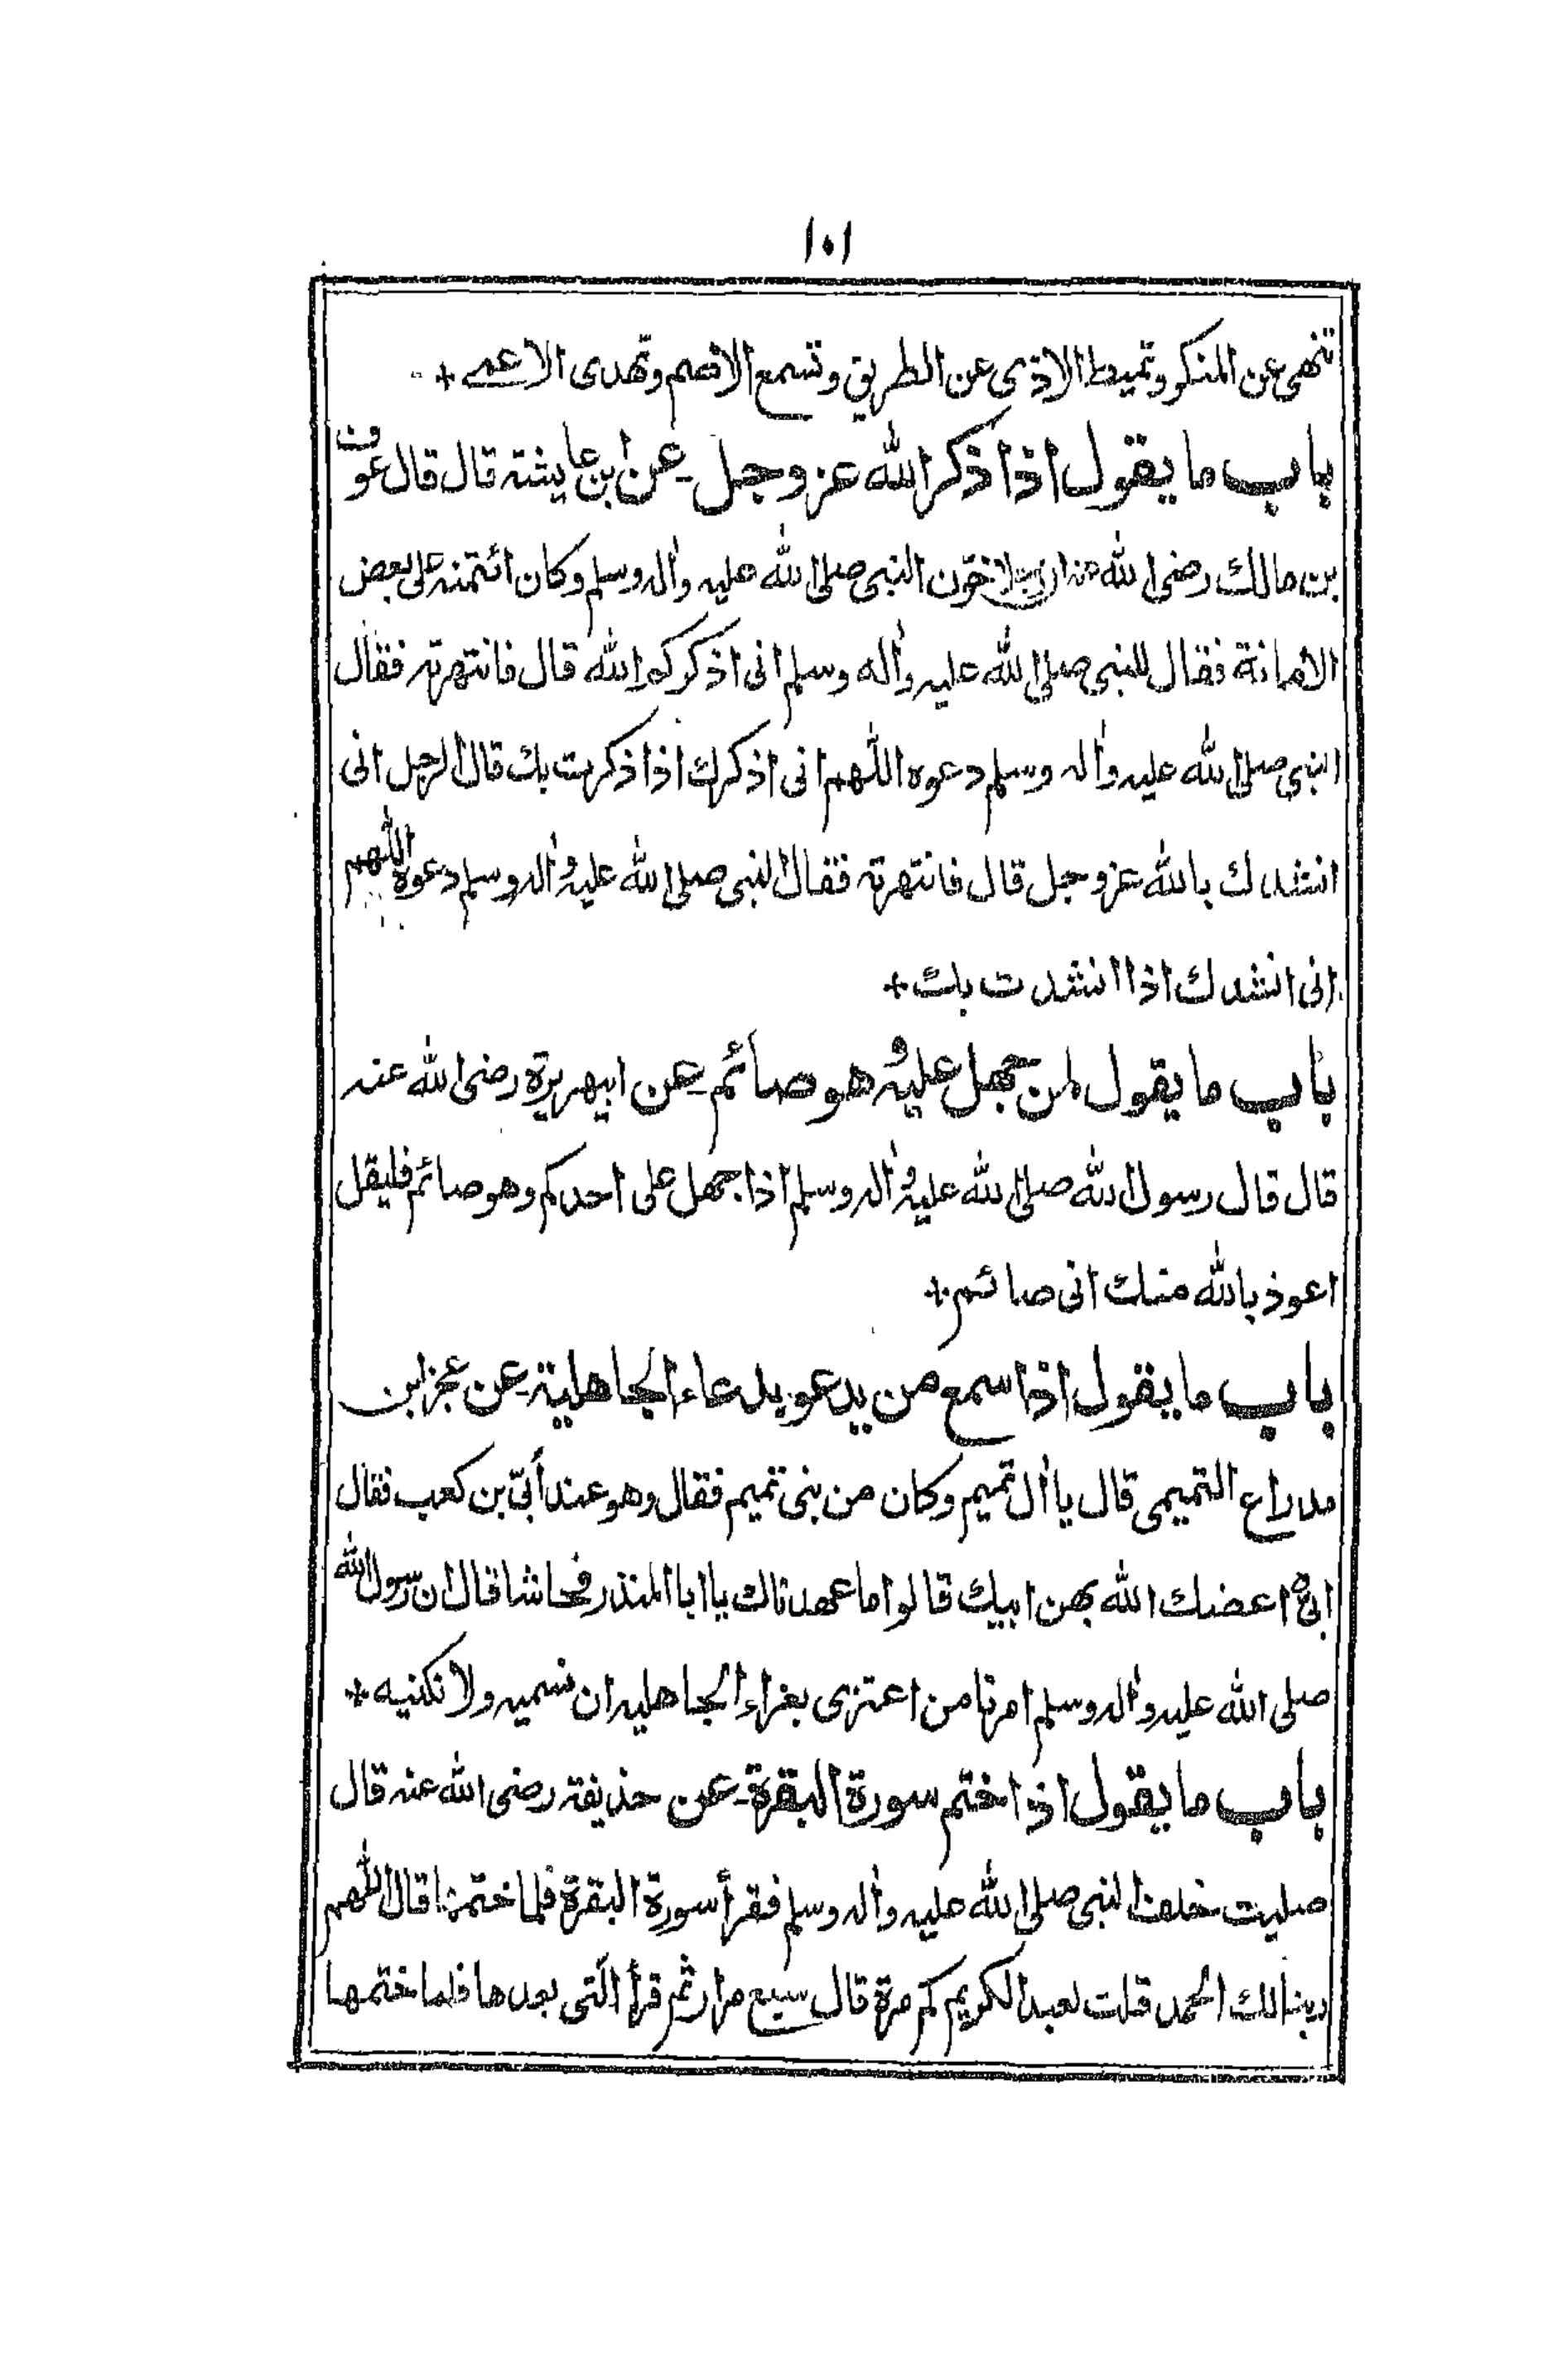 ١٠١
تنهى عن المنكر وتميط الاذى عن الطريق وتسمع الاصم وتهدى الاعمى +
باب ما يقول اذا ذكر الله عز وجل ـ عن ابن عايشة قال قال عوف
بن مالك رضى الله عنه ان رجلا خوّن النبى صلى الله عليه واٰله وسلم وكان ائتمنه على بعض
الامانة فقال للنبى صلى الله عليه واٰله وسلم انى اذكركم الله قال فانتهرته فقال
النبى صلى الله عليه واٰله وسلم دعوه اللّٰهم انى اذكرك اذا ذكرت بك قال الرجل انى
انشدك بالله عز وجل قال فانتهرته فقال النبى صلى الله عليه واٰله وسلم دعوه اللّٰهم
انى انشدك اذا انشدت بك +
باب ما يقول لمن جهل عليه وهو صائم ـ عن ابيهريرة رضى الله عنه
قال قال رسول الله صلى الله عليه واٰله وسلم اذا جهل على احدكم وهو صائم فليقل
اعوذ بالله منك انى صائم +
باب ما يقول اذا سمع من يدعو بدعاء الجاهلية ـ عن عجز ابن
مدراع التميمى قال يا اٰل تميم وكان من بنى تميم فقال وهو عند أبىّ بن كعب فقال
ابى اعضك الله بهن ابيك قالوا ما عهدناك يا ابا المنذر فحاشا قال ان رسول الله
صلى الله عليه واٰله وسلم امرنا من اعتزى بعزاء الجاهليه ان نسميه ولا نكنيه +
باب ما يقول اذا ختم سورة البقرة ـ عن حذيفة رضى الله عنه قال
صليت خلف النبى صلى الله عليه واٰله وسلم فقرأ سورة البقرة فلما ختمها قال اللّٰهم
ربنا لك الحمد قلت لعبد الكريم كم مرة قال سبع مرار ثم قرأ الّتى بعدها فلما ختمها